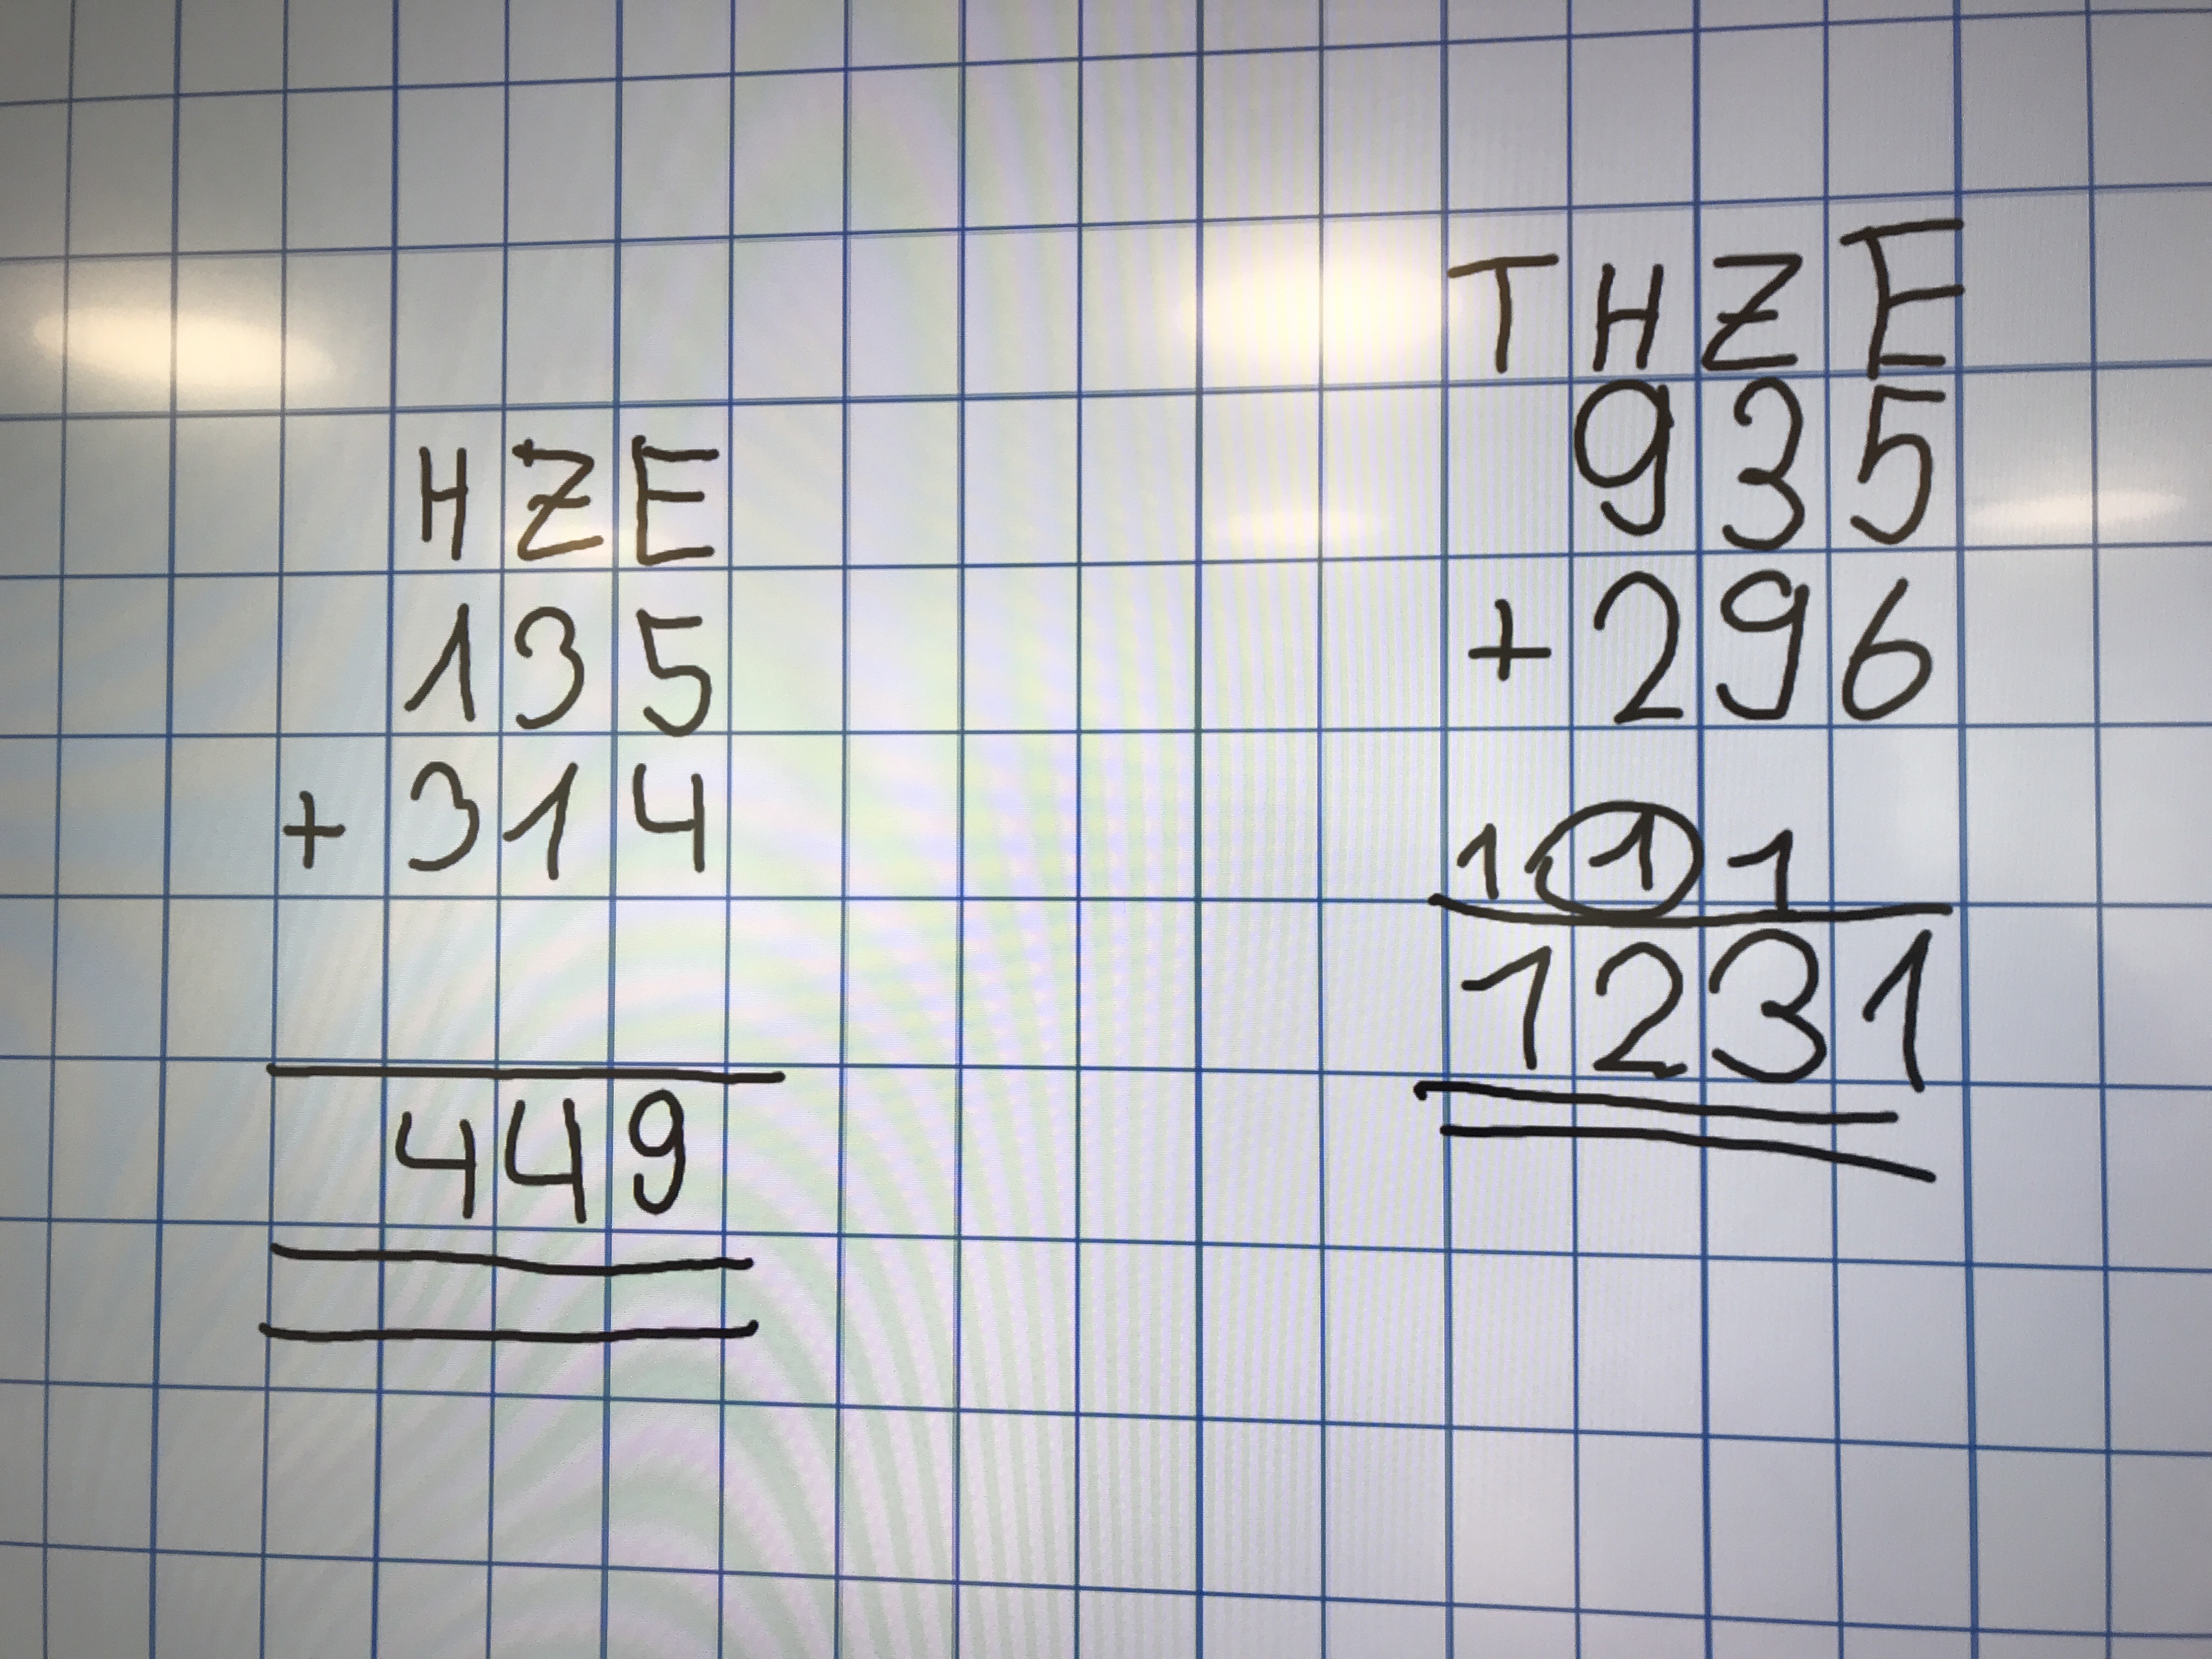 H Z E
1 3 5
+ 3 1 4
4 4 9
T H Z E
9 3 5
+ 2 9 6
1 1 1
1 2 3 1